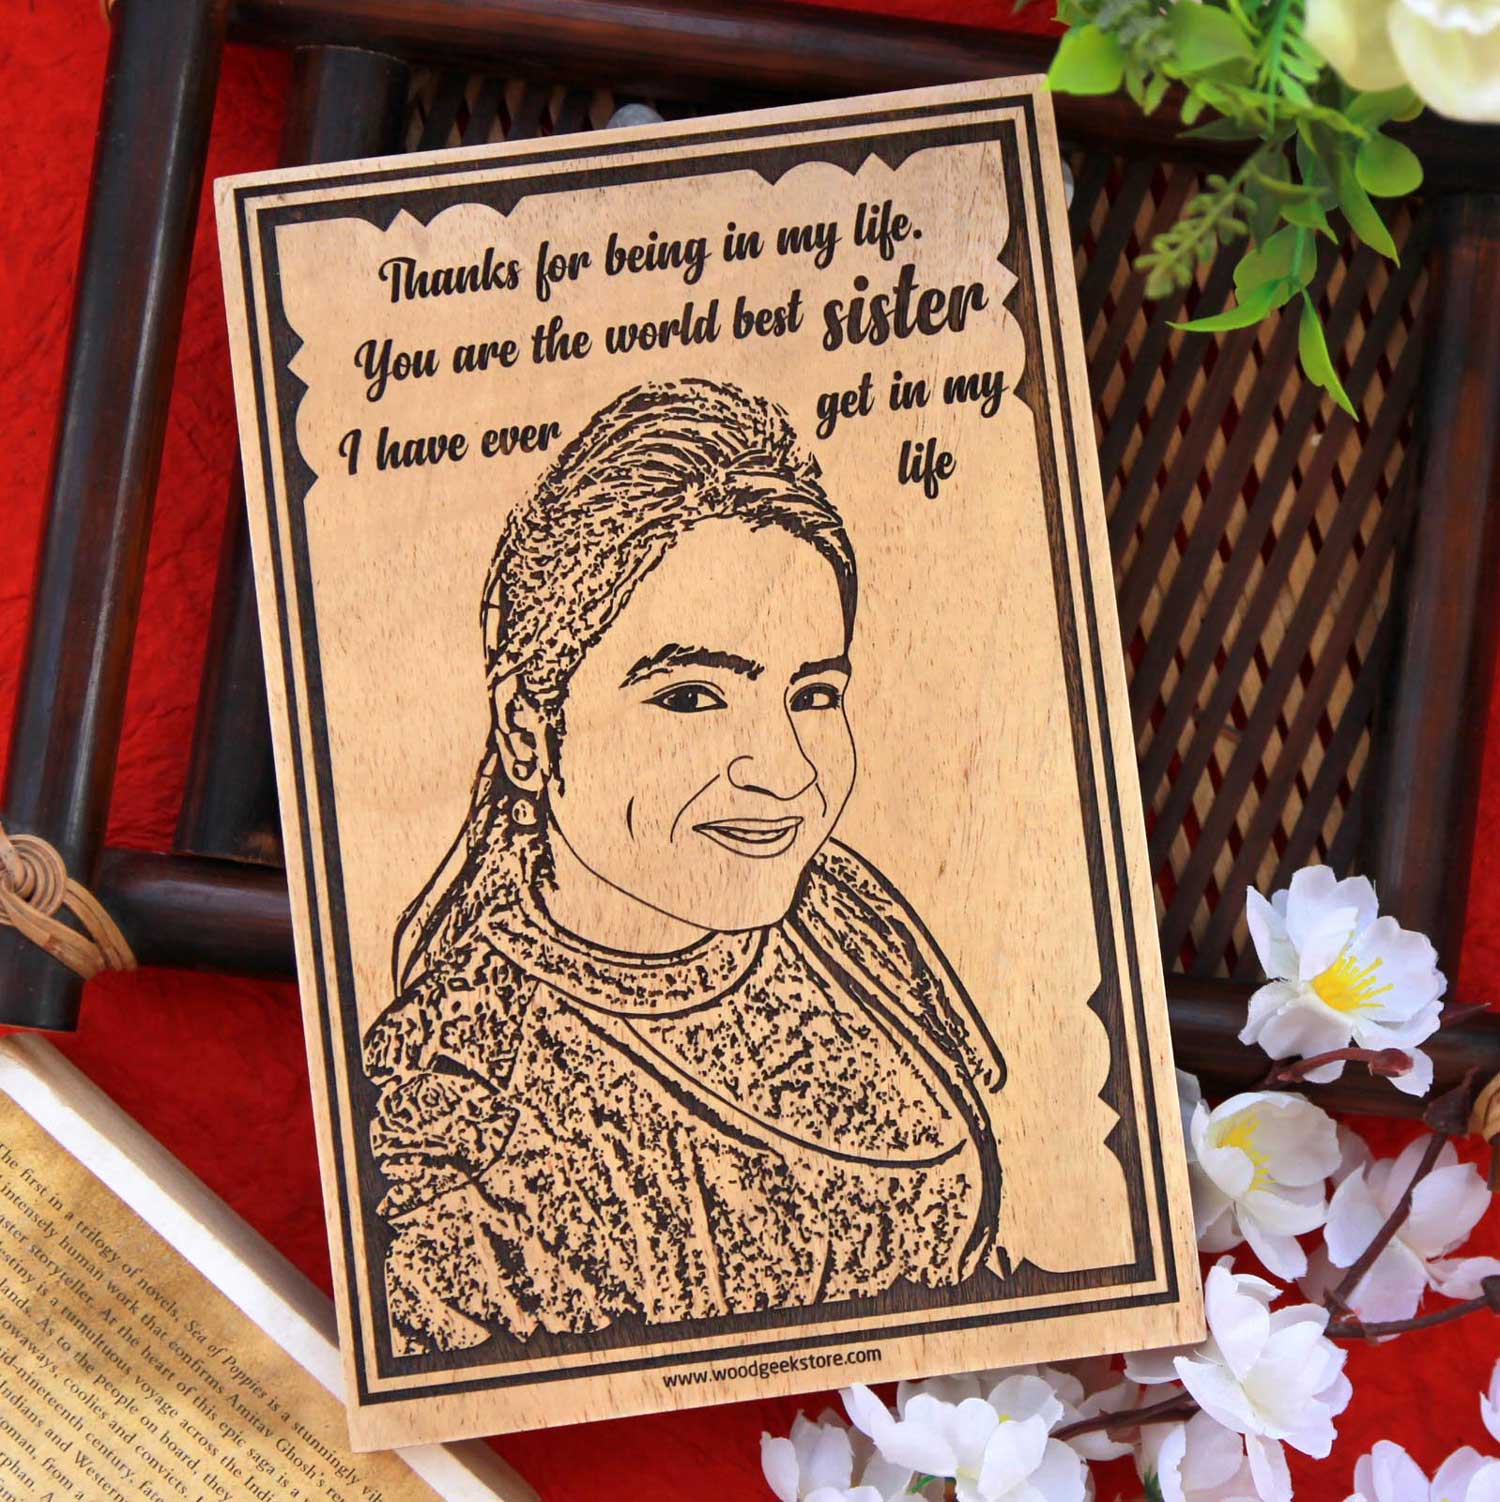 Thanks for being in my life.
You are the world best sister
I have ever get in my
life
www.woodgeekstore.com
The first in a trilogy of novels, Sea of Poppies is a stunningly
intensely human work that confirms Amitav Ghosh's
storyteller. At the heart of this epic saga is a
destiny is a tumultuous voyage across the Indi
lands. As to the people on board, they
towaways, coolies and convicts.
mid-nineteenth century,
Indians and Western
from a